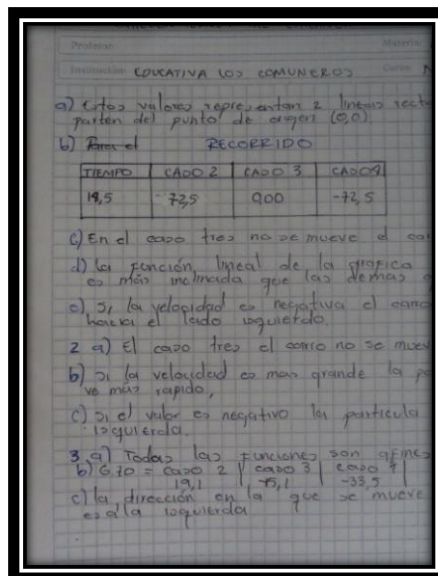 Profesor: Materia
Institución EDUCATIVA LOS COMUNEROS Curso
a) Estos valores representan 2 lineas rect
parten del punto de origen (0,0)
b) RECORRIDO
TIEMPO CASO 2 CASO 3
19,5 -72,5 -72,5
c) En el caso tres no se mueve el car
d) la función lineal de la grafica
es más inclinada que las demas
e) si la velocidad es negativa el carro
hacia el lado isquierdo
2 a) El caso tres el carro no se muev
b) si la velocidad es mas grande la p
ve más rapido,
c) si el valor es negativo la particula
isquierda.
3 a) Todas las funciones son afines
b) 6.70 = caso 2 caso 3 caso 4
19,1 -33,5
c) la dirección en la que se mueve
es a la isquierda